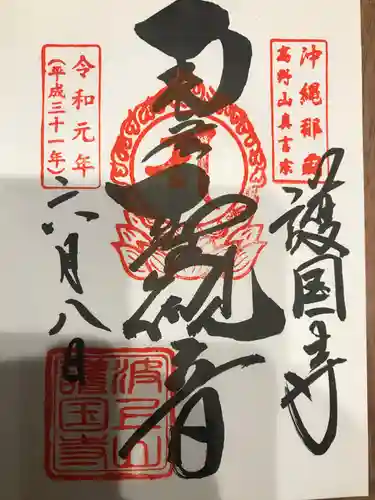 沖縄那覇
高野山真言宗
護国寺
南無聖観音
令和元年
(平成三十一年)
六月八日
波上山
護国寺